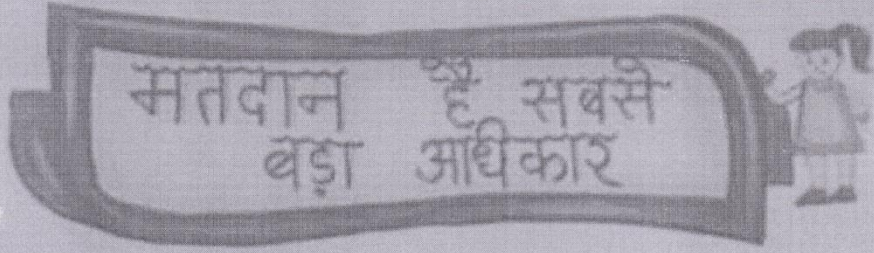 मतदान है सबसे
बड़ा अधिकार